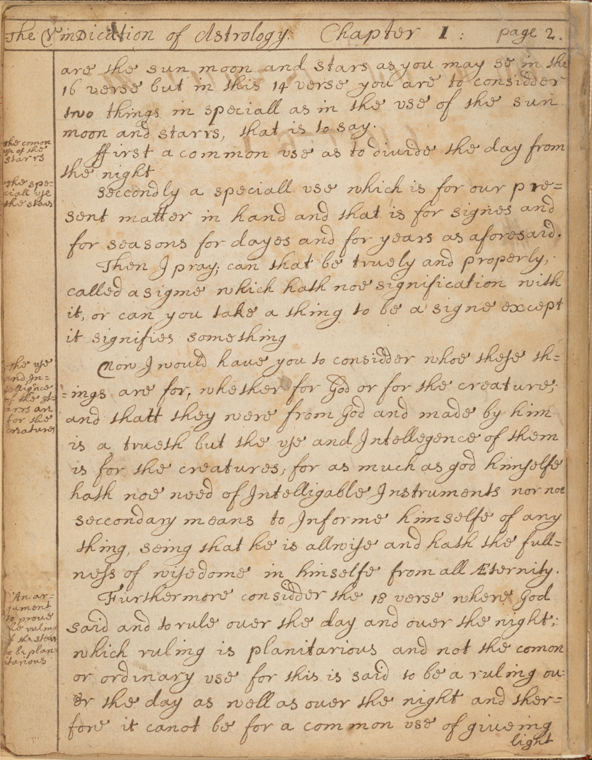 The Vindication of Astrology. Chapter 1: page 2.
are the sun moon and stars as you may se in the
16 verse but in this 14 verse you are to considder
two things in speciall as in the vse of the sun
moon and starrs, that is to say.
the comon
vse of the
starrs
ffirst a common vse as to divide the day from
the night
the spe=
ciall vse
the stars
seccondly a speciall vse which is for our pre=
sent matter in hand and that is for signes and
for seasons for dayes and for years as aforesaid.
Then I pray; can that be truely and properly,
called a signe which hath noe signification with
it, or can you take a thing to be a signe except
it signifies something
the vse
and In=
of the st=
arrs are
for the
creatures
Now I would have you to considder whoe these th=
=ings are for, whether for God or for the creature;
and thatt they were from God and made by him
is a trueth but the vse and Intellegence of them
is for the creatures; for as much as god himselfe
hath noe need of Intelligable Instruments nor noe
seccondary means to Informe himselfe of any
thing, seing that he is allwise and hath the full=
ness of wisedome in himselfe from all Æternity.
An ar=
gument
to prove
the ruling
of the stars
to be plan
itarious
Furthermore considder the 18 verse where God
said and to rule over the day and over the night;
which ruling is planitarious and not the comon
or ordinary vse for this is said to be a ruling ou=
er the day as well as over the night and ther=
fore it canot be for a common vse of giveing
light